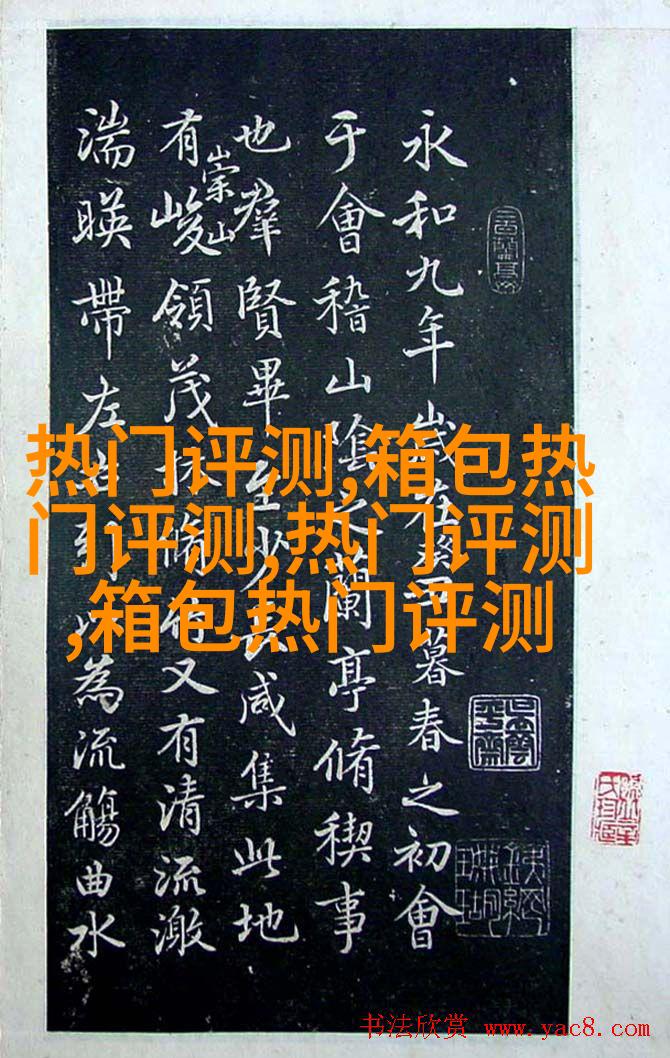 永和九年歲在癸丑暮春之初會
于會稽山陰之蘭亭脩稧事
也羣賢畢至少長咸集此地
有崇山峻領茂林脩竹又有清流激
湍暎帶左右引以為流觴曲水
热门评测,箱包热
门评测,热门评测
,箱包热门评测
书法欣赏 www.yac8.com